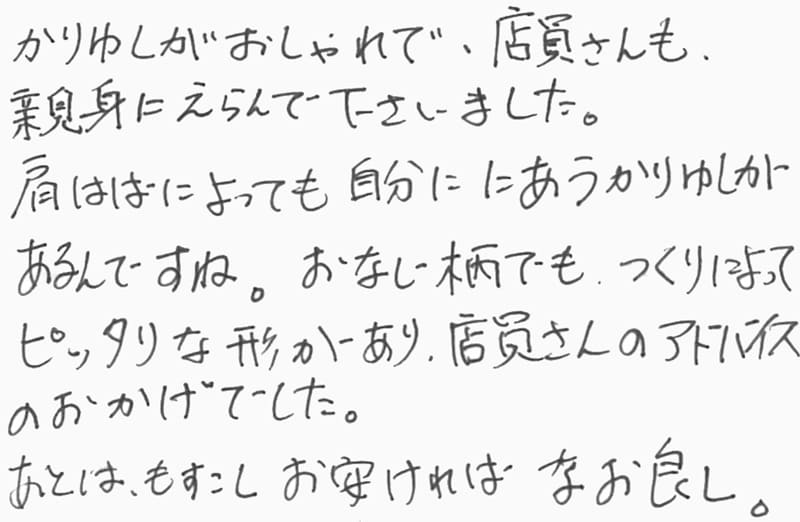 かりゆしがおしゃれで、店員さんも、
親身にえらんで下さいました。
肩はばによっても自分ににあうかりゆしが
あるんですね。おなじ柄でも、つくりによって
ピッタリな形があり、店員さんのアドバイス
のおかげでした。
あとは、もすこしお安ければなお良し。